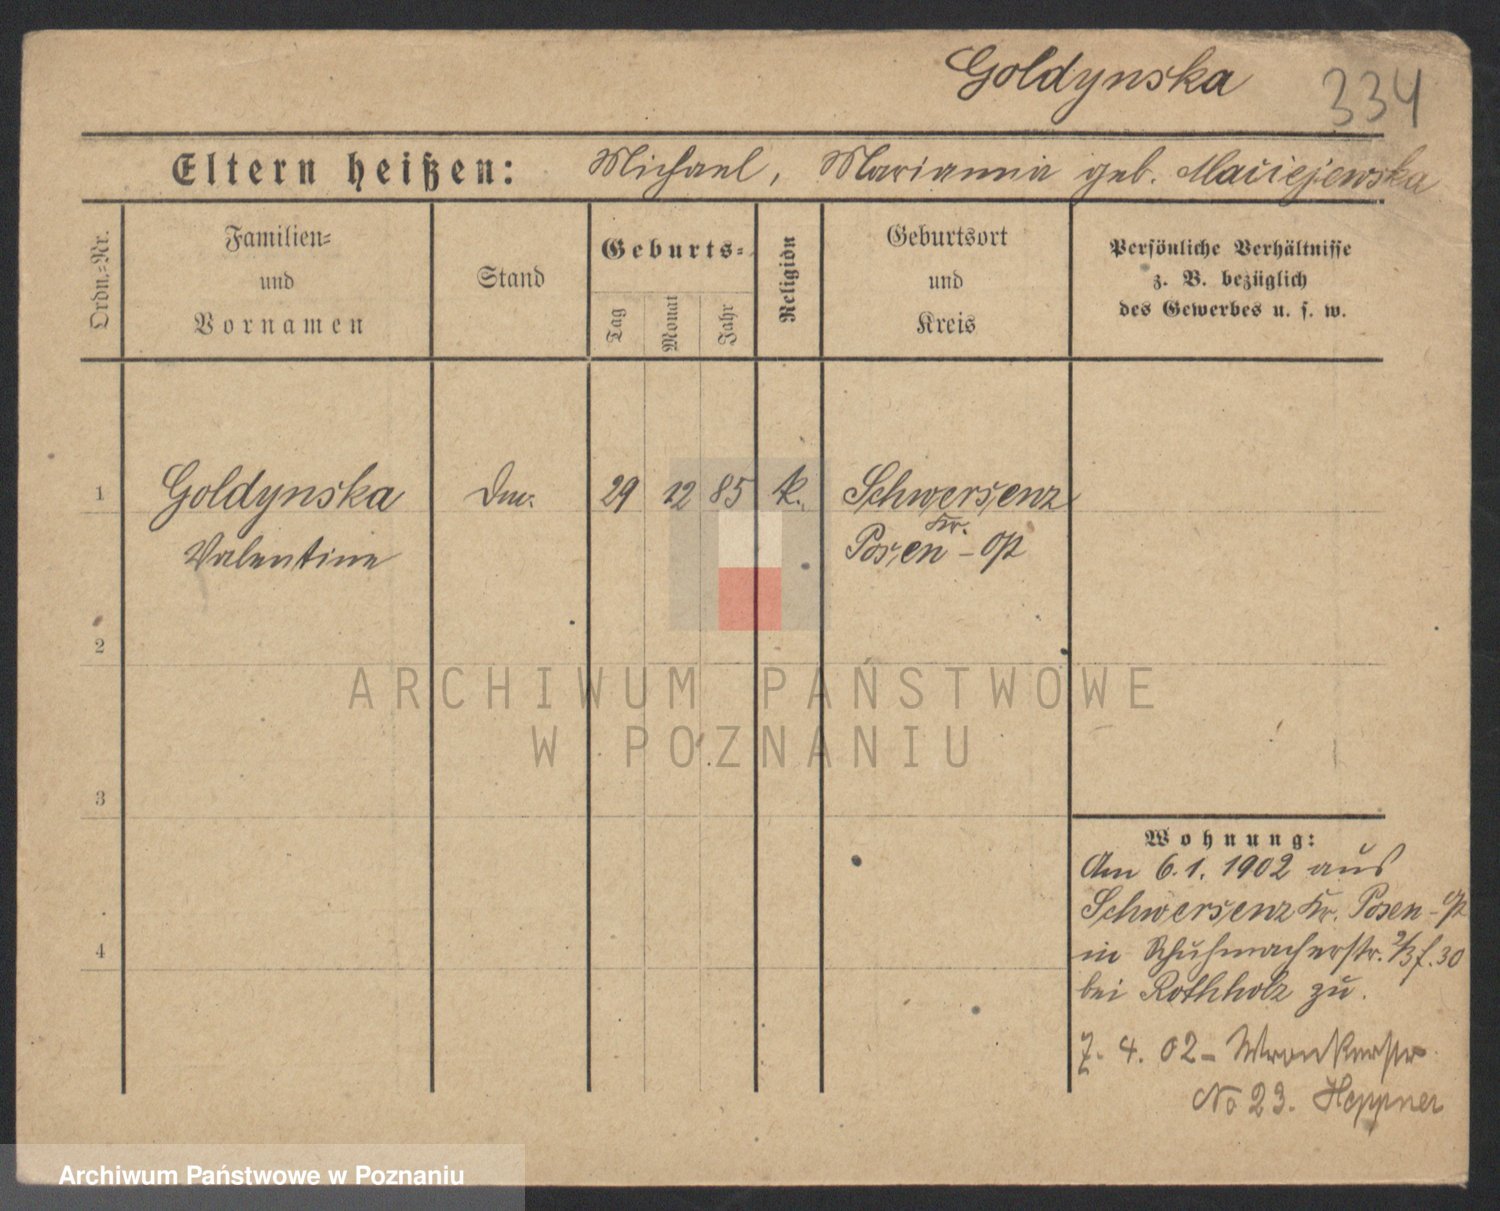 Goldynska 334
Eltern heißen: Michael, Marianna geb. Maciejewska
Ordn.=Nr.
Familien=
und
Vornamen
Stand
Geburts=
Tag
Monat
Jahr
Religion
Geburtsort
und
Kreis
Persönliche Verhältnisse
z. B. bezüglich
des Gewerbes u. s. w.
1 Goldynska 29 12 85 k. Schwersenz
Valentine
Kr.
Posen - Op
2
3
4
Wohnung:
Am 6.1.1902 aus
Schwersenz Kr. Posen-Op
in Schuhmacherstr. 2/3 f. 30
bei Rothholz zu.
7. 4. 02 - Wronkerstr
No 23. Heppner
ARCHIWUM PAŃSTWOWE
W POZNANIU
Archiwum Państwowe w Poznaniu